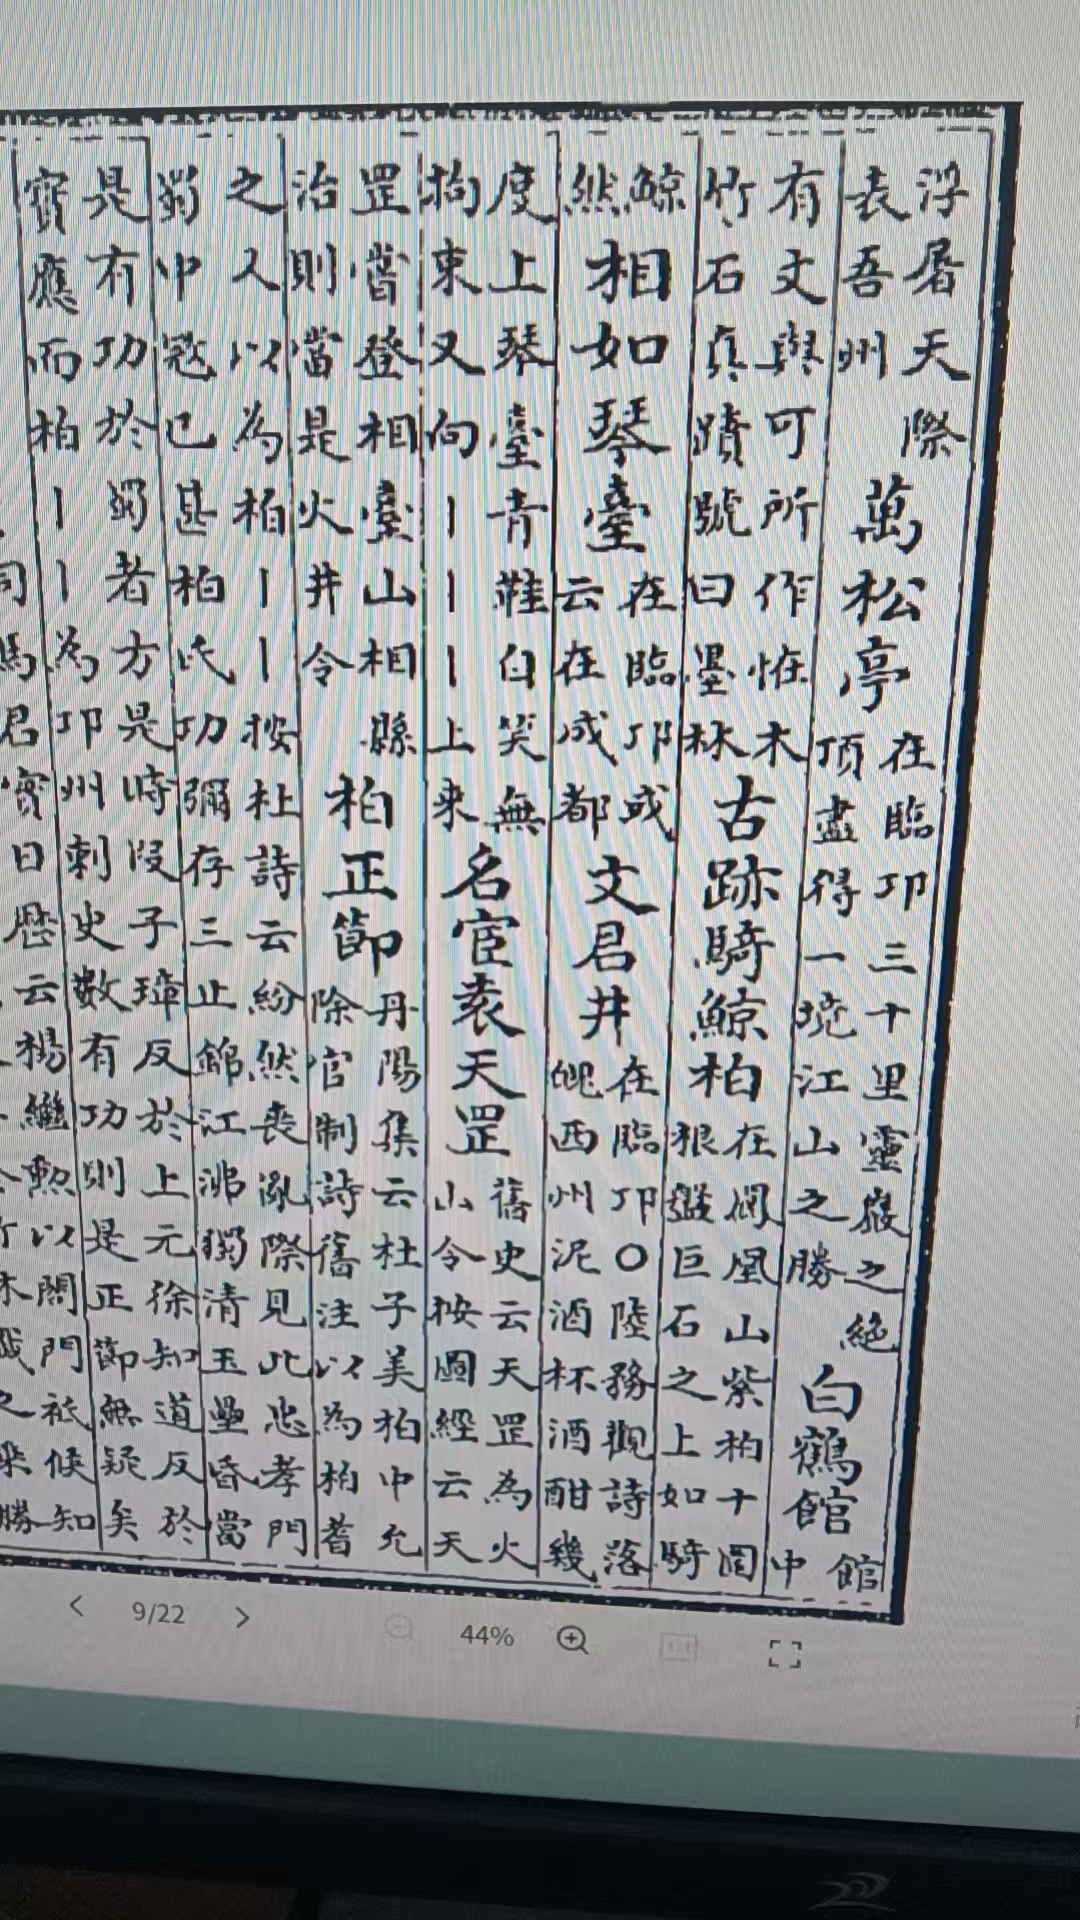 浮屠天際
表吾州
萬松亭
在臨邛三十里靈巖之絶
頂盡得一境江山之勝
白鶴館
館
中
有文與可所作恠木
竹石真蹟號曰墨林
古跡騎鯨柏
在鳳凰山紫柏十圍
根盤巨石之上如騎
鯨
然
相如琴臺
在臨邛或
云在成都
文君井
在臨邛○陸務觀詩落
魄西州泥酒杯酒酣幾
度上琴臺青鞋白笑無
拘束又向丨丨丨上來
名宦袁天罡
舊史云天罡為火
山令按圖經云天
罡嘗登相臺山相縣
治則當是火井令
柏正節
丹陽集云杜子美柏中允
除官制詩舊注以為柏耆
之人以為柏丨丨按杜詩云紛然喪亂際見此忠孝門
蜀中冦已甚柏氏功彌存三止錦江沸獨清玉壘昏當
是有功於蜀者方是時段子璋反於上元徐知道反於
寶應而柏丨丨為邛州刺史數有功則是正節無疑矣
司馬君實日歷云楊繼勲以閤門祗候知
9/22
44%
1:1